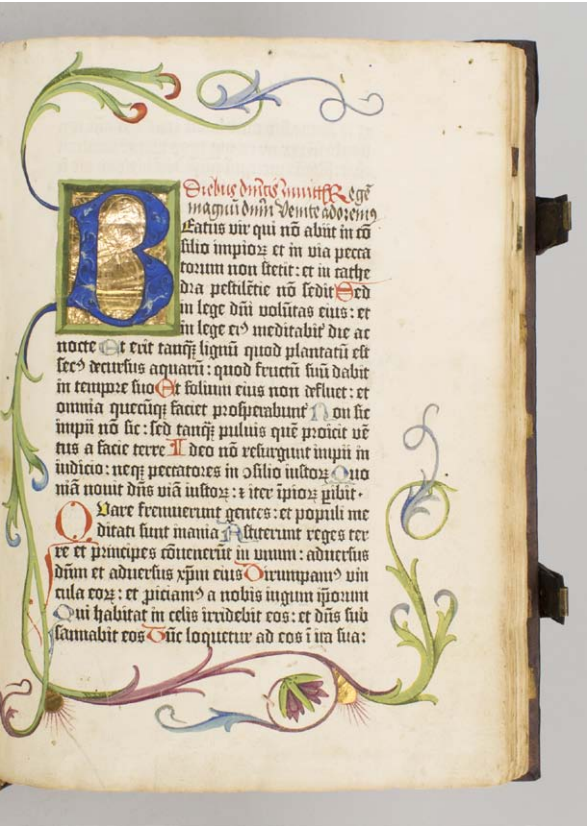 Diebus dñicis Inuitť Regē
magnū dnm̄ Venite adoremꝰ
Beatus vir qui nō abiit in cō
silio impioꝝ et in via pecca
torum non stetit: et in cathe
dra pestilētie nō sedit Sed
in lege dñi volūtas eius: et
in lege eiꝰ meditabit̄ die ac
nocte Et erit tanq̄ʒ lignū quod plantatū est
secꝰ decursus aquarū: quod fructū suū dabit
in tempore suo Et folium eius non defluet: et
omnia quecūqʒ faciet prosperabunt̄ Non sic
impii nō sic: sed tanq̄ʒ puluis quē proicit vē
tus a facie terre Ideo nō resurgunt impii in
iudicio: neqʒ peccatores in ↄsilio iustoꝝ Quo
niā nouit dñs viā iustoꝝ: ⁊ iter īpioꝝ ꝑibit.
Quare fremuerunt gentes: et populi me
ditati sunt inania Astiterunt reges ter
re et principes cōuenerūt in vnum: aduersus
dūm et aduersus xp̄m eius Dirumpamꝰ vin
cula eoꝝ: et ꝓiciamꝰ a nobis iugum ip̄orum
Qui habitat in celis irridebit eos: et dñs sub
sannabit eos Tūc loquetur ad eos ī ira sua: